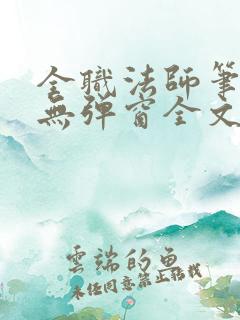 全職法師筆
無彈窗全文
雲端的魚
未經同意禁止轉載